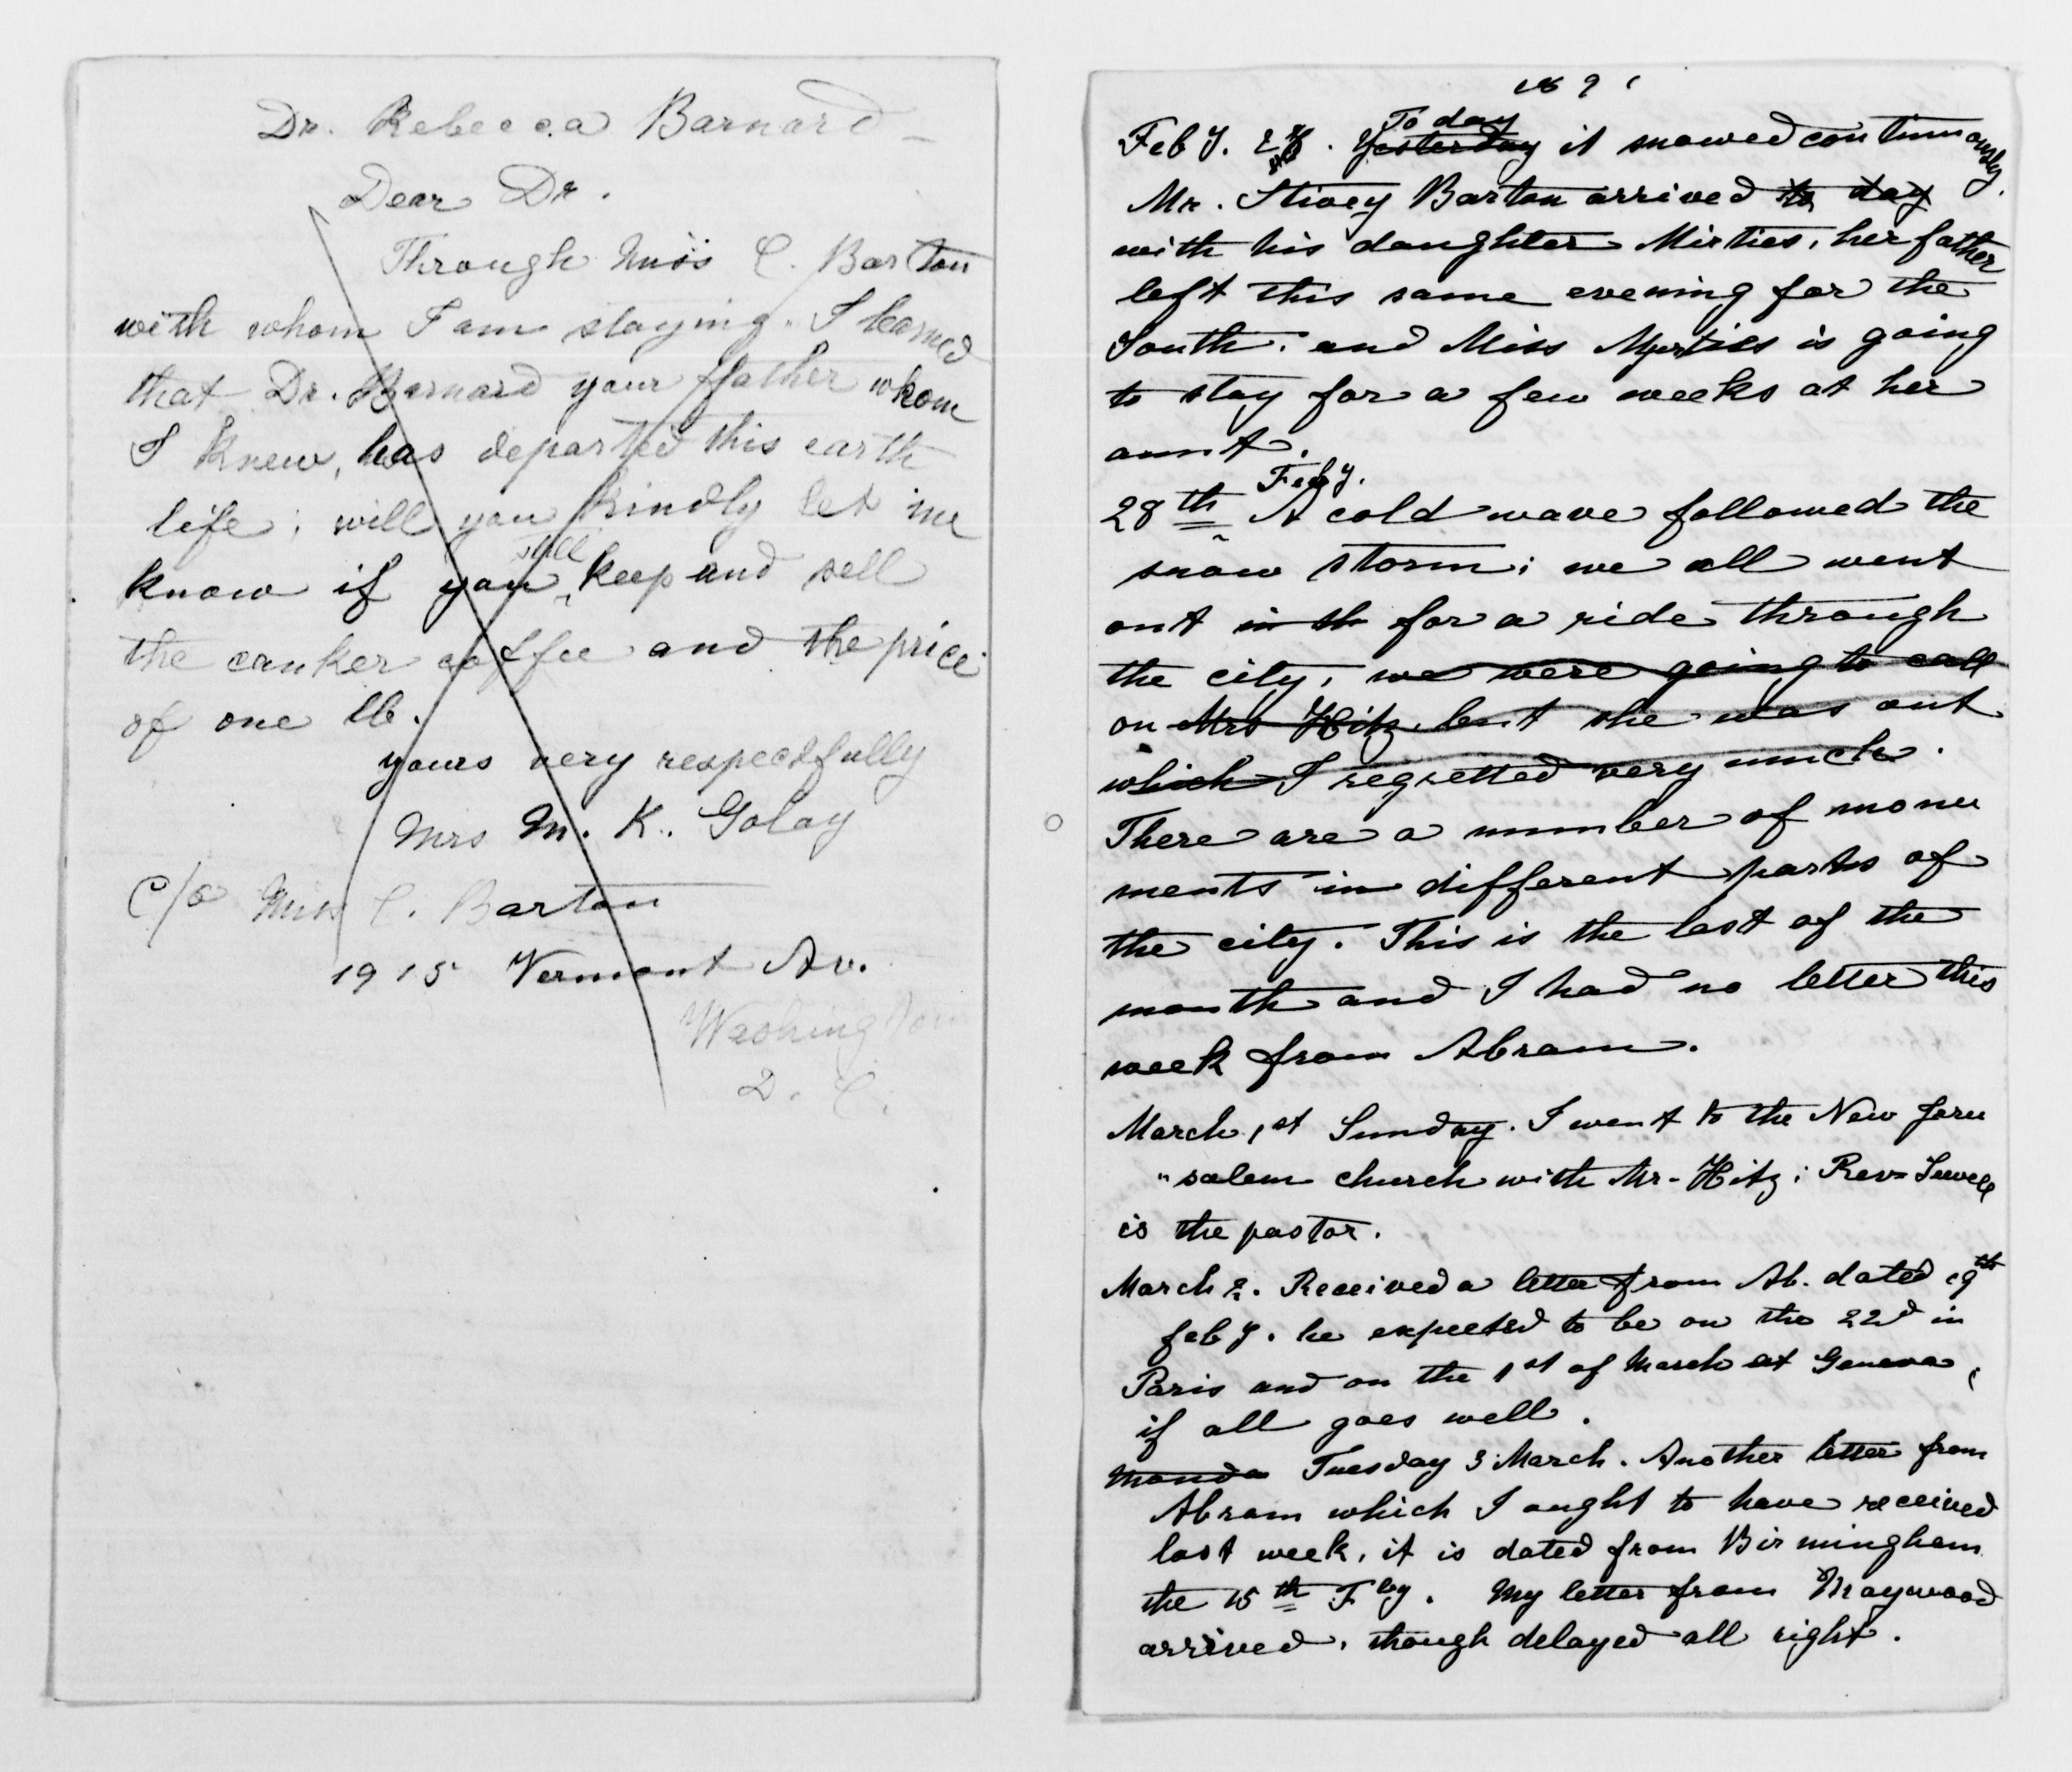 Dr. Rebecca Barnard
Dear Dr.
Through Miss C. Barton
with whom I am staying. I learned
that Dr. Barnard your father whom
I knew, has departed this earth
life; will you kindly let me
still
know if you keep and sell
the canker coffee and the price
of one lb.
yours very respectfully
Mrs M. K. Golay
C/o Miss C. Barton
1915 Vermont Av.
Washington
D. C.
1891
To day
Feb y. Yesterday it snowed continuously.
Mr. Barton arrived to day
with his daughter Mirties, her father
left this same evening for the
South. and Miss Myrties is going
to stay for a few weeks at her
aunt.
Feby.
28th A cold wave followed the
snow storm; we all went
out in th for a ride through
the city, we were going to call
on Mrs Hitz but she was out
which I regretted very much.
There are a number of monu
ments in different parts of
the city. This is the last of the
month and I had no letter this
week from Abram.
March 1st Sunday. I went to the New Jeru
"salem church with Mr. Hitz; Rev=
is the pastor.
March 2. Received a letter from Ab. dated 19th
feb y. he expected to be on the 22d in
Paris and on the 1st of March at Geneva,
if all goes well.
Monda Tuesday 3 March. Another letter from
Abram which I ought to have received
last week, it is dated from Birmingham
the 15th Fby. My letter from Maywood
arrived, though delayed all right.